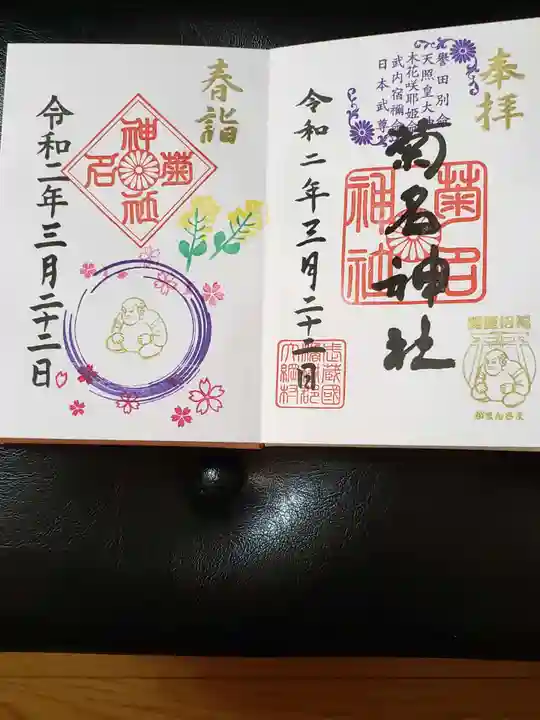 奉拝
譽田別命
天照皇大神
木花咲耶姫命
武内宿禰命
日本武尊
菊名神社
菊名神社
令和二年三月二十二日
武蔵國
橘樹郡
大綱村
開運招福
がまんさま
春詣
菊名神社
令和二年三月二十二日